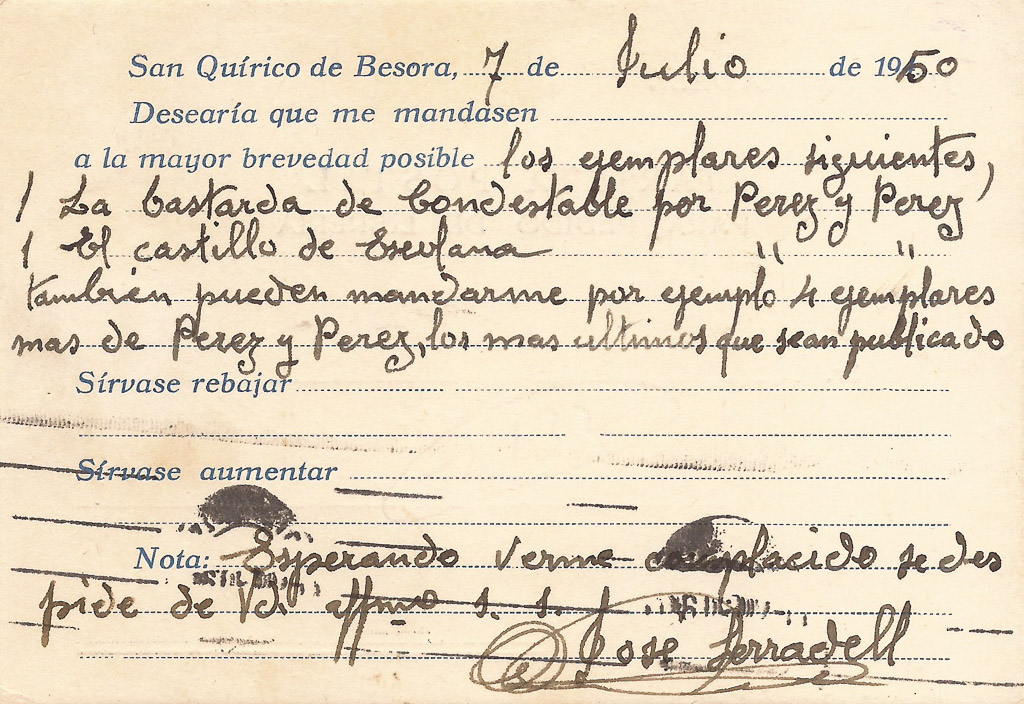 San Quírico de Besora, 7 de Julio de 1950
Desearía que me mandasen
a la mayor brevedad posible los ejemplares siguientes,
1 La bastarda de Condestable por Perez y Perez
1 El castillo de Escolana " "
tambien pueden mandarme por ejemplo 4 ejemplares
mas de Perez y Perez, los mas ultimos que sean publicado
Sírvase rebajar
Sírvase aumentar
Nota: Esperando verme complacido se des
pide de Vd. affmo s. s.
Jose Serradell